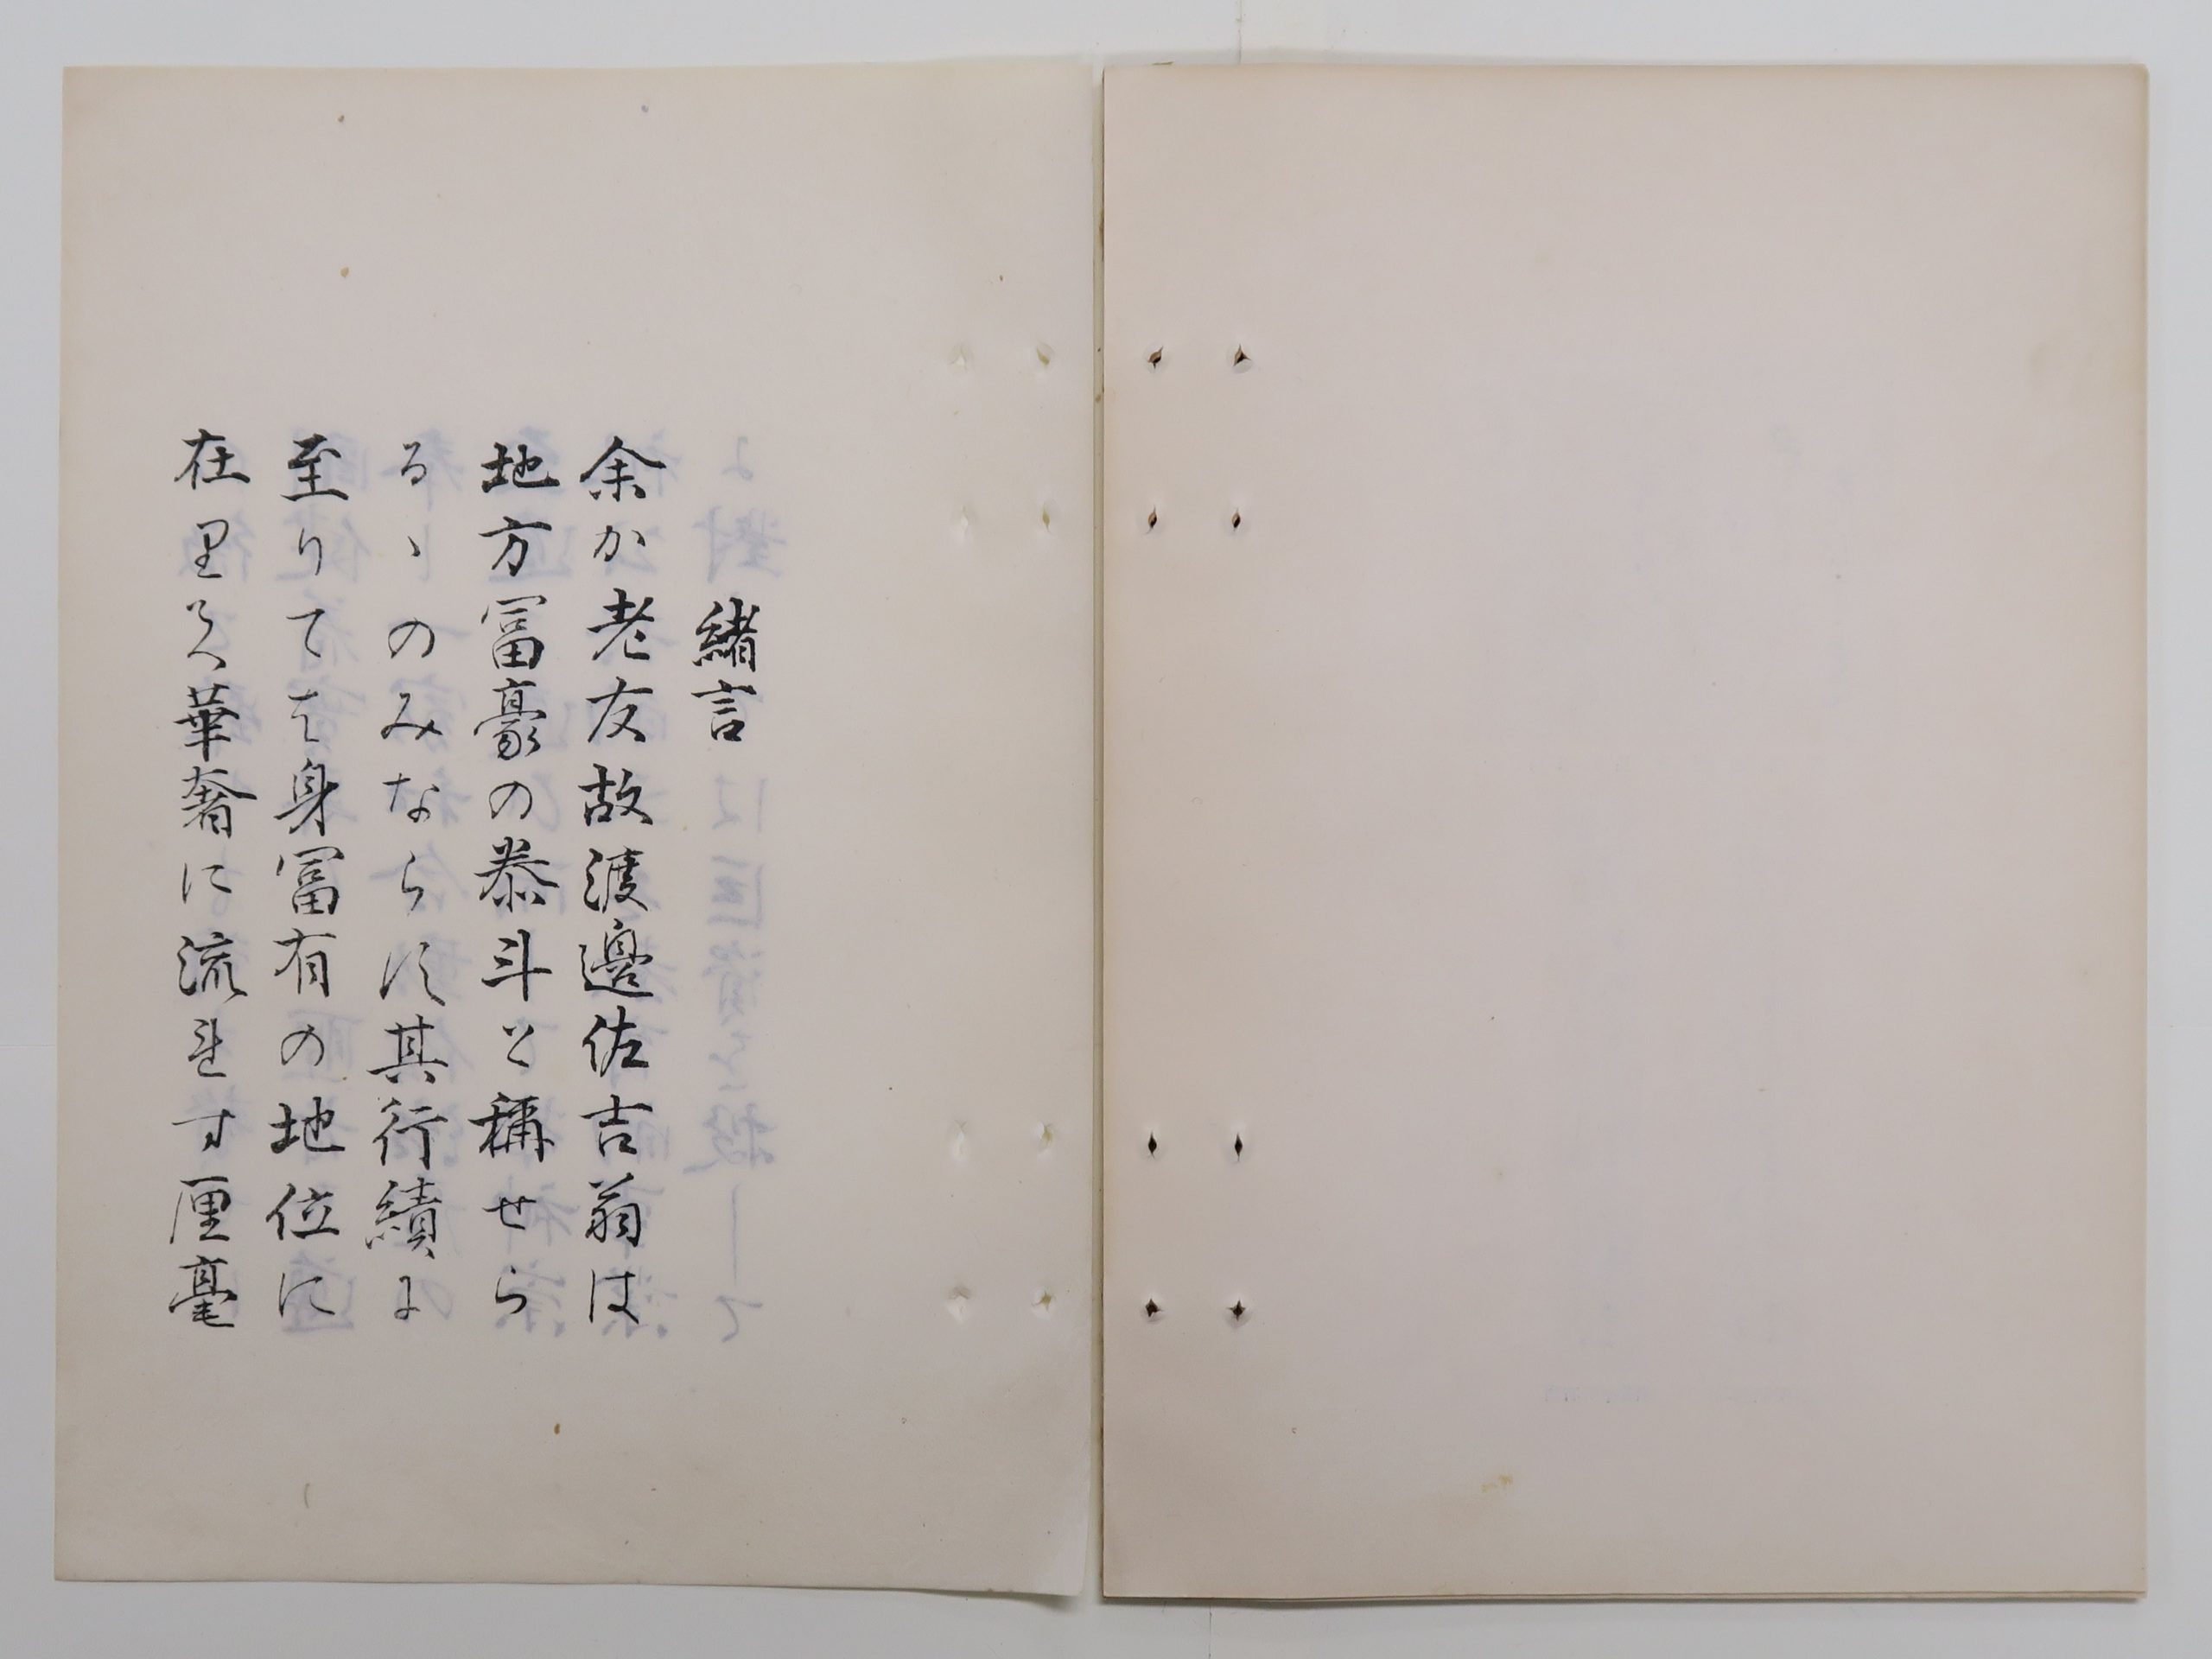 緒言
余か老友故渡邉佐吉翁は
地方冨豪の泰斗と稱せら
るゝのみならす其行績に
至りても身冨有の地位に
在りて華奢に流れす厘毫